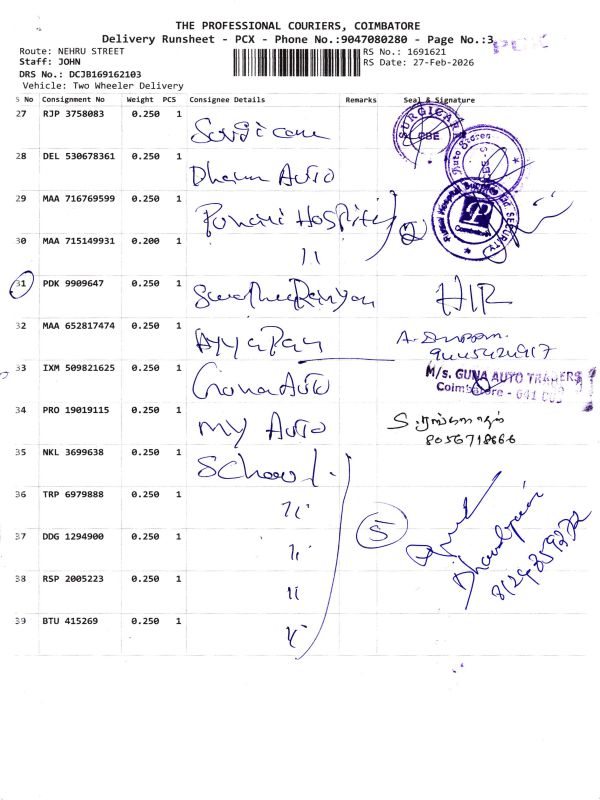 THE PROFESSIONAL COURIERS, COIMBATORE
Delivery Runsheet - PCX - Phone No.:9047080280 - Page No.:3
PCX
Route: NEHRU STREET
RS No.: 1691621
Staff: JOHN
RS Date: 27-Feb-2026
DRS No.: DCJB169162103
Vehicle: Two Wheeler Delivery
S No Consignment No Weight PCS Consignee Details Remarks Seal & Signature
27 RJP 3758083 0.250 1 Surgicare
SURGICARE CBE
28 DEL 530678361 0.250 1 Dharun Auto
Auto Stores
29 MAA 716769599 0.250 1 Hospital
SECURITY
30 MAA 715149931 0.200 1 11
2
31 PDK 9909647 0.250 1
32 MAA 652817474 0.250 1 Ayyapan
33 IXM 509821625 0.250 1 Guna Auto
M/s. GUNA AUTO TRADERS
Coimbatore - 641
34 PRO 19019115 0.250 1 My Auto
8056718666
35 NKL 3699638 0.250 1 School
36 TRP 6979888 0.250 1 11
5
37 DDG 1294900 0.250 1 11
38 RSP 2005223 0.250 1 11
39 BTU 415269 0.250 1 11